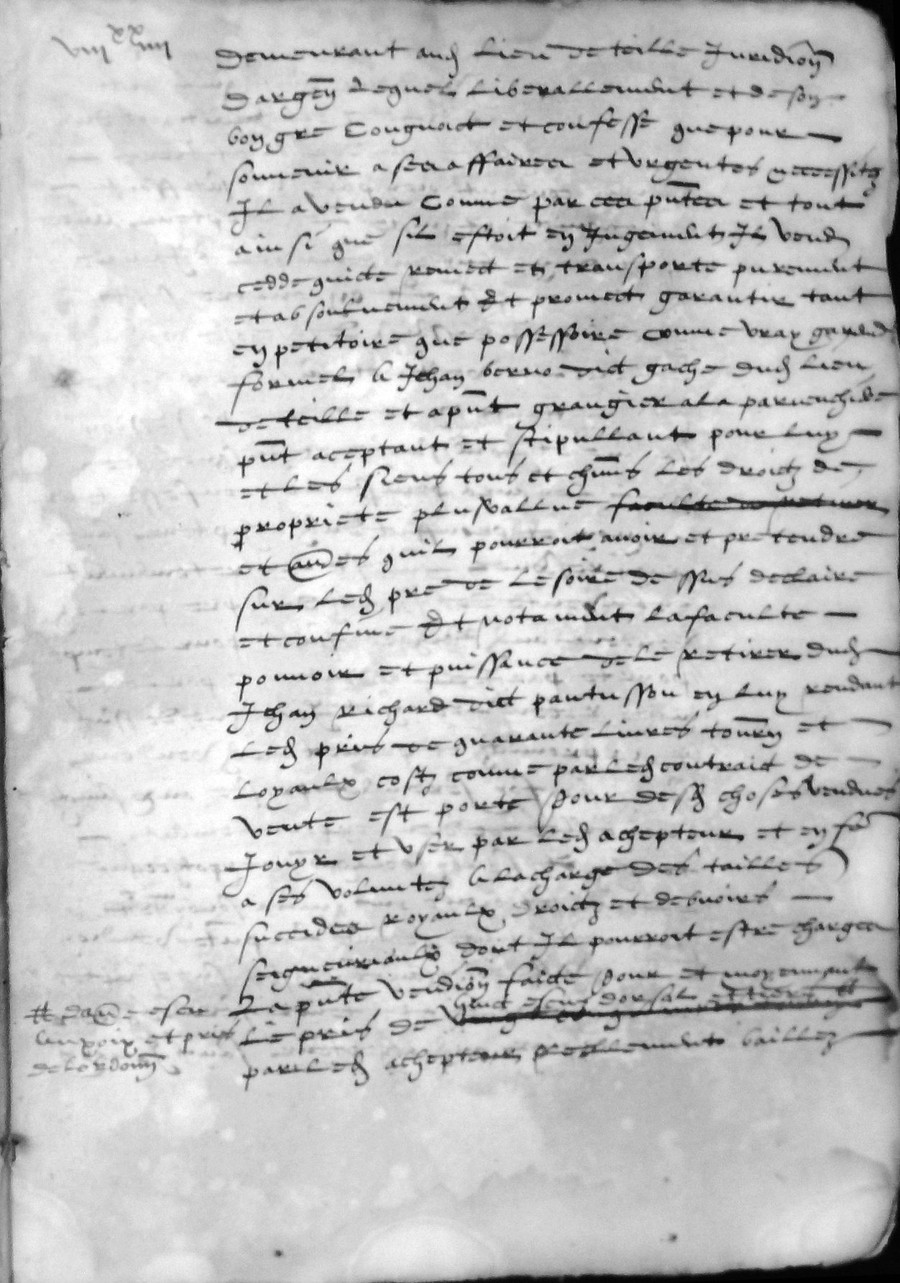 viii xx iiii
demeurant aud lieu de teille Juridion
dargen Lequel Liberallement et de son
bon gre Congnoict et confesse que pour
souvenir a ses affaires et urgentes necessitez
Il a vendu Comme par ces pntes et tout
ainsi que sil estoit en Jugement Il vend
cedde quicte remect et transporte purement
et absoluement et promect garantir tant
en petitoire que possessoire comme vray garend
formel a Jehan dict gache dud lieu
de teille et a pnt grangier a la
pnt aceptant et stipullant pour luy
et les siens tous et chms les droictz de
propriete plus vallue faculte de retirer
et aues quil pourroit avoir et pretendre
sur led pre de Lesoire dessus declaire
et confine et notament la faculte
pouvoir et puissance de le retirer dud
Jehan Richard dict pantusson en luy rendant
led pris de quarante livres tourn et
Loyaulx costz comme par led contraict de
vente est porte pour desd choses vendues
Jouyr et user par led achepteur et en fe
a ses voluntez a la charge des tailles
succides royaulx droictz et debvoirs
seigneuriaulx dont Il pourroit estre charges
La pnte vendion faicte pour et moyennant
Le pris de huict escus dor sol et tiers
# daue escu
au poix et pris
de lordonn
par led achepteur reellement baillez